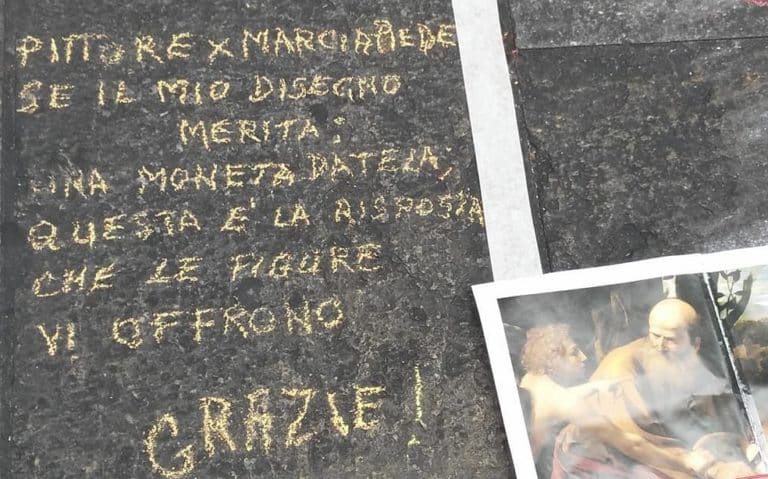 PITTORE X MARCIAPIEDE
SE IL MIO DISEGNO
MERITA:
UNA MONETA DATELA,
QUESTA E' LA RISPOSTA
CHE LE FIGURE
VI OFFRONO
GRAZIE!